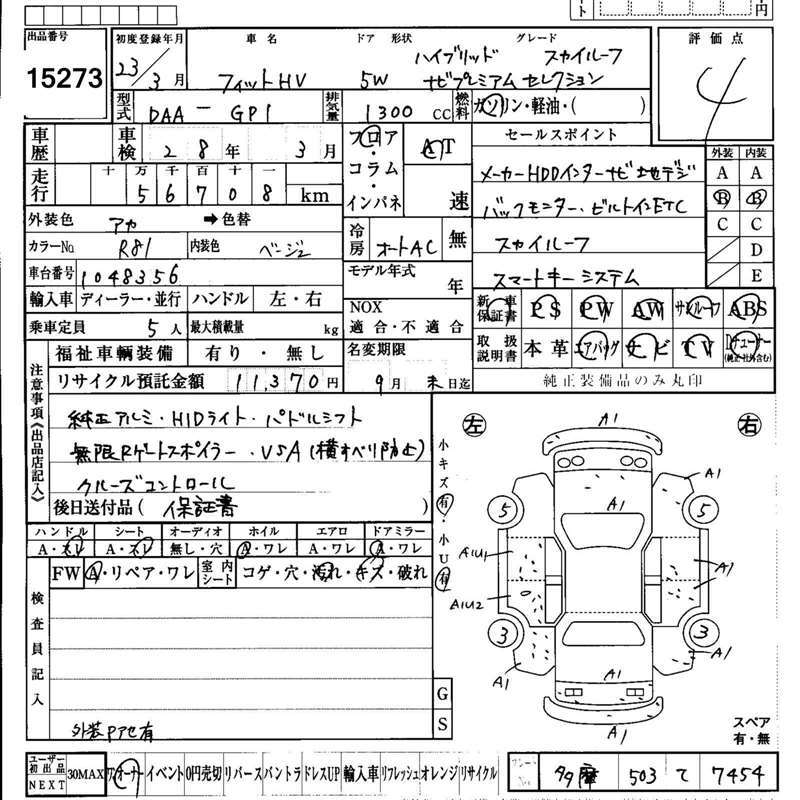 出品番号 初度登録年月 車名 ドア 形状 グレード 評価点
15273 23年 3月 フィットHV 5W ハイブリッド スカイルーフ
ナビプレミアム セレクション 4
型式 DAA - GP1 排気量 1300 cc 燃料 ガソリン・軽油・( )
車歴 車検 28年 3月 フロア・コラム・インパネ AT 速 セールスポイント 外装 内装
走行 十万千百十一 56708 km
メーカーHDDインターナビ 地デジ A A
バックモニター・ビルトインETC B B
スカイルーフ C C
スマートキーシステム D
E
外装色 アカ ➡色替
カラーNo. R81 内装色 ベージュ 冷房 オートAC 無
車台番号 1048356 モデル年式 年
輸入車 ディーラー・並行 ハンドル 左・右 NOX 適合・不適合
乗車定員 5人 最大積載量 kg
新車保証書 PS PW AW サンルーフ ABS
取扱説明書 本革 エアバッグ ナビ TV Dチューナー (純正・社外含む)
純正装備品のみ丸印
福祉車輌装備 有り・無し 名変期限
リサイクル預託金額 11,370円 9月 末日迄
注意事項《出品店記入》
純正アルミ・HIDライト・パドルシフト
無限Rゲートスポイラー・VSA(横すべり防止)
クルーズコントロール
後日送付品( 保証書 )
小キズ有・小U有
ハンドル シート オーディオ ホイル エアロ ドアミラー
A・スレ A・スレ 無し・穴 A・ワレ A・ワレ A・ワレ
FW A・リペア・ワレ 室内シート コゲ・穴・汚れ・キズ・破れ
検査員記入
外装Pアセ有
G
S
左 右
A1
A1
A1
5 5
A1U1 A1
A1U2
3 3
A1 A1
A1
A1
スペア
有・無
ユーザー初出品NEXT 30MAX ワンオーナー イベント 0円売切 リバース バントラ ドレスUP 輸入車 リフレッシュ オレンジ リサイクル
多摩 503 て 7454